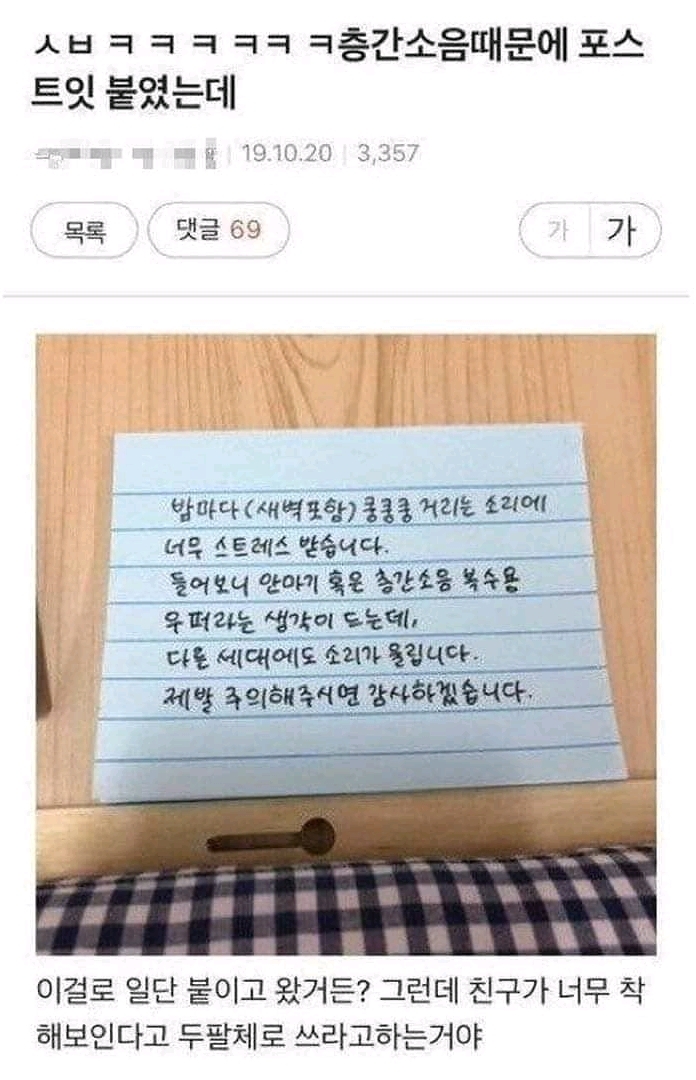 ㅅㅂ ㅋ ㅋ ㅋ ㅋㅋ ㅋ층간소음때문에 포스
트잇 붙였는데
19.10.20 3,357
목록 댓글 69 가 가
밤마다(새벽포함) 쿵쿵쿵 거리는 소리에
너무 스트레스 받습니다.
들어보니 안마기 혹은 층간소음 복수용
우퍼라는 생각이 드는데,
다른 세대에도 소리가 울립니다.
제발 주의해주시면 감사하겠습니다.
이걸로 일단 붙이고 왔거든? 그런데 친구가 너무 착
해보인다고 두팔체로 쓰라고하는거야